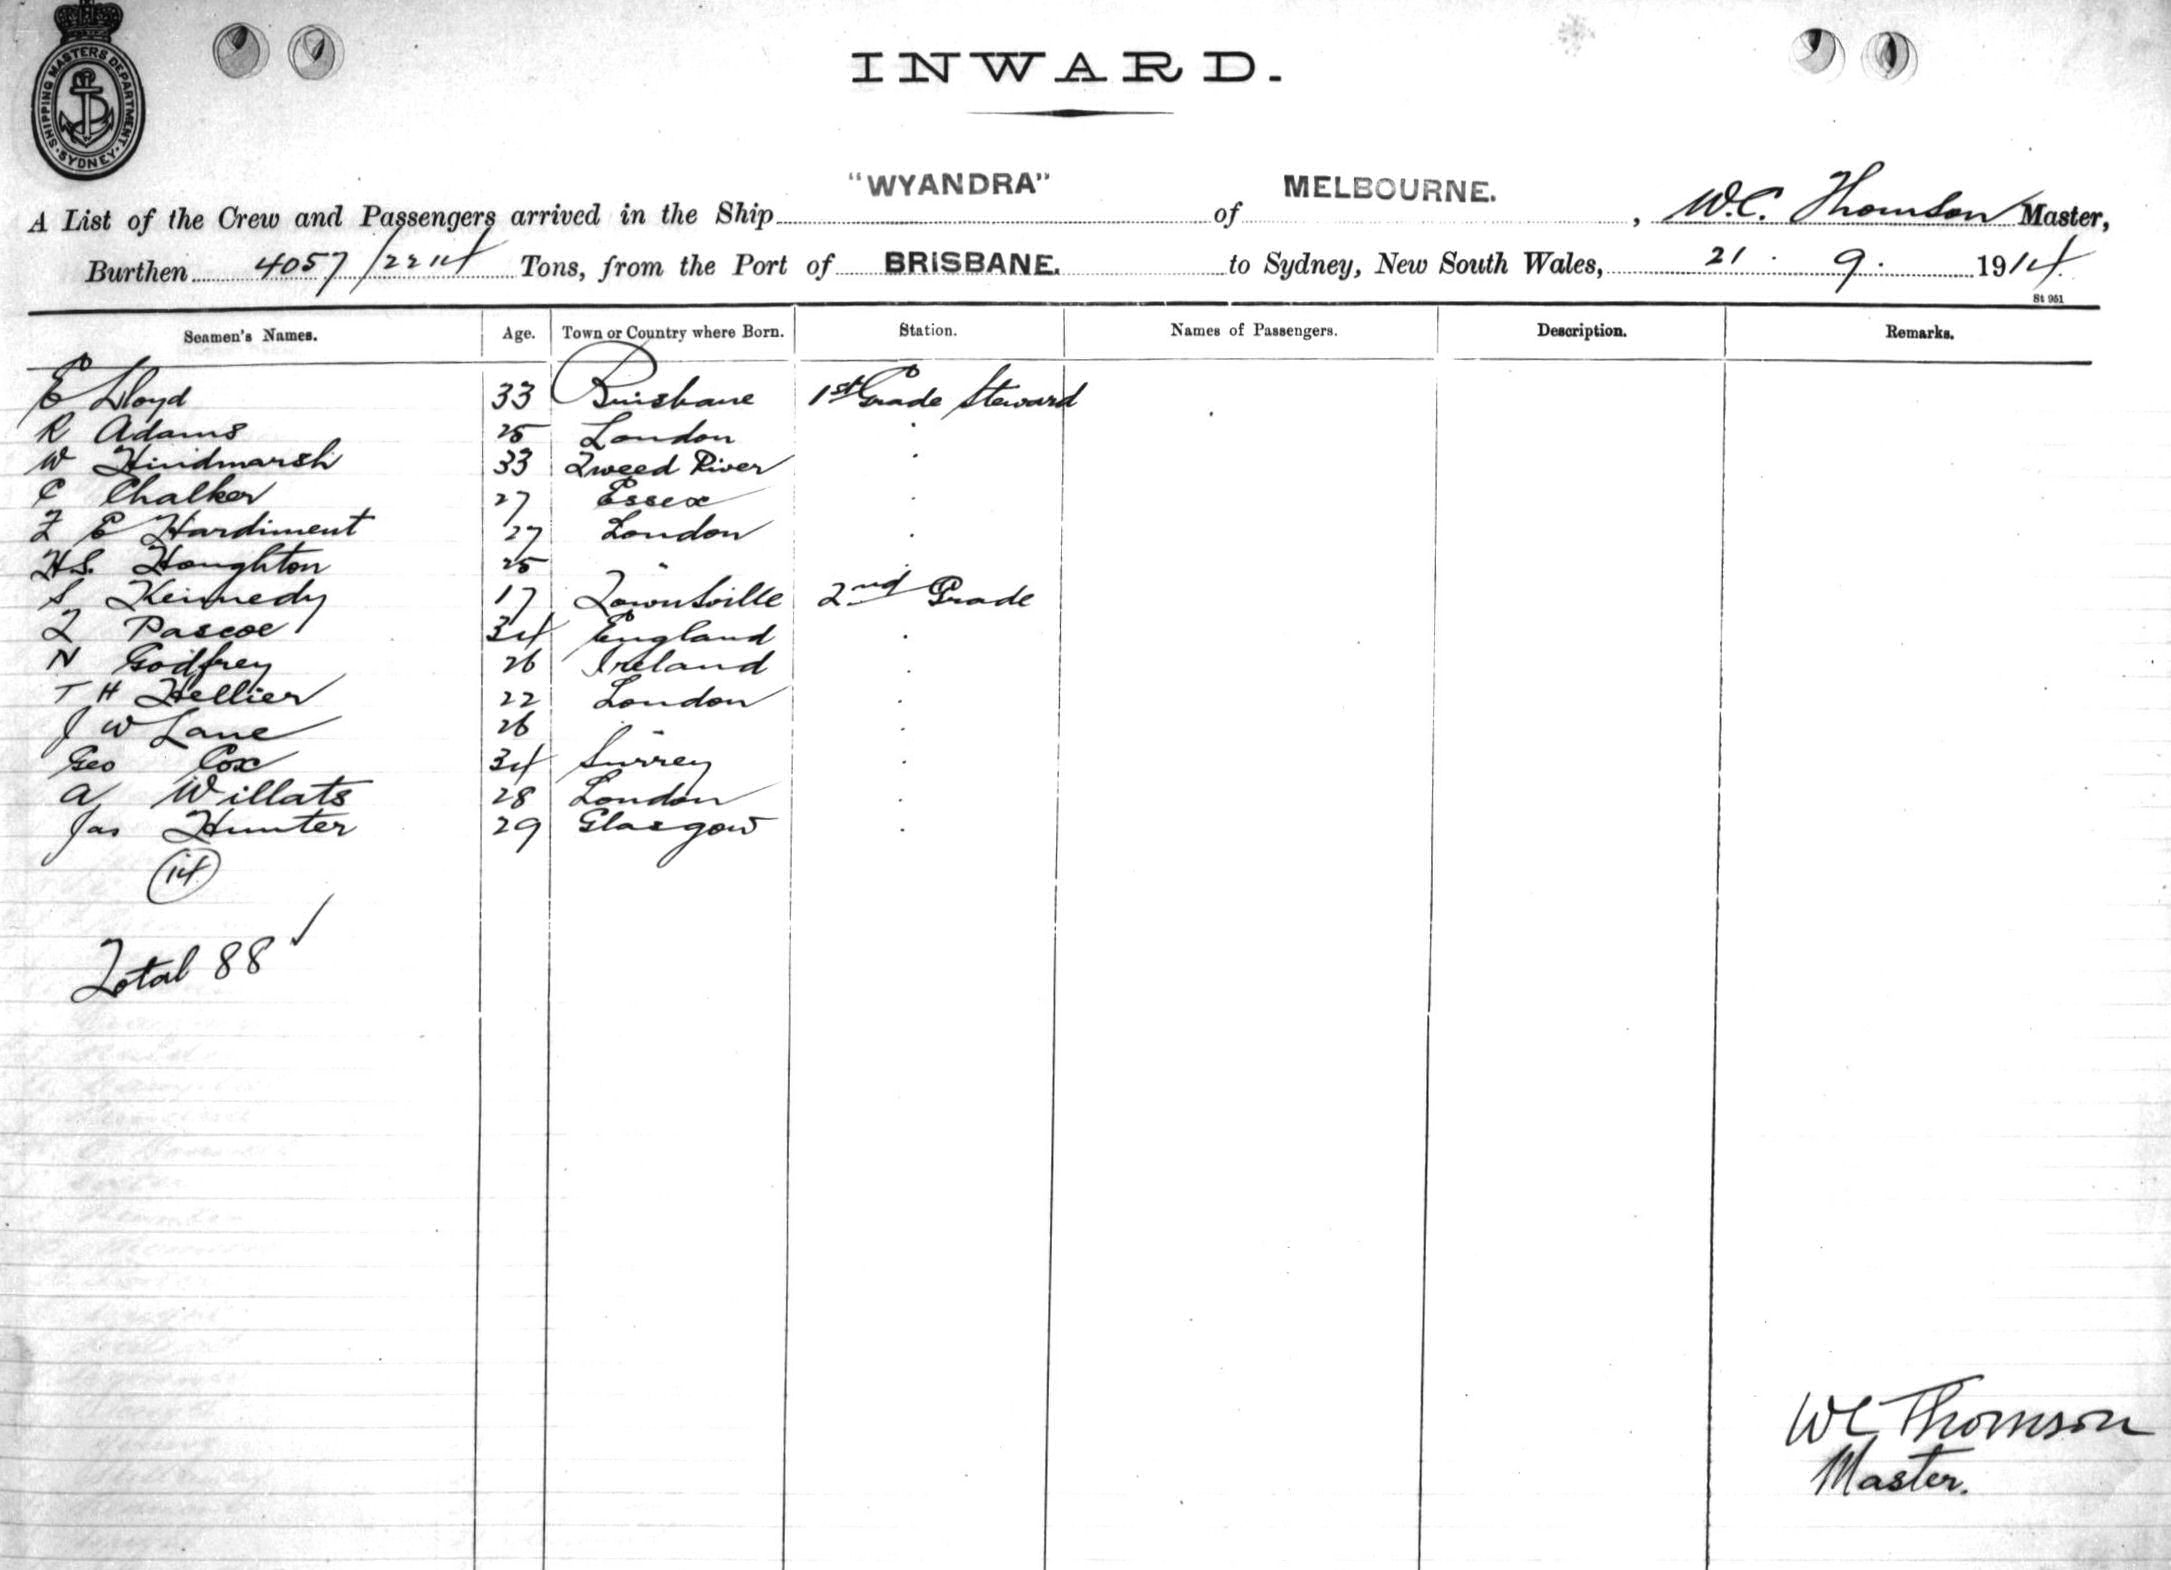 SHIPPING MASTERS DEPARTMENT. SYDNEY.
INWARD.
A List of the Crew and Passengers arrived in the Ship "WYANDRA" of MELBOURNE. , W.C. Thomson Master,
Burthen 4057/2214 Tons, from the Port of BRISBANE. to Sydney, New South Wales, 21 . 9 . 1914
St 951
Seamen's Names. Age. Town or Country where Born. Station. Names of Passengers. Description. Remarks.
E Lloyd 33 Brisbane 1st Grade Steward
R Adams 25 London "
W Hindmarsh 33 Tweed River "
C Chalker 27 Essex "
F E Hardiment 27 London "
H.S. Houghton 25 " "
S Kennedy 17 Townsville 2nd Grade
T Pascoe 34 England "
N Godfrey 26 Ireland "
T H Hellier 22 London "
J W Lane 26 " "
Geo Cox 34 Surrey "
A Willats 28 London "
Jas Hunter 29 Glasgow "
14
Total 88 ✓
WC Thomson
Master.